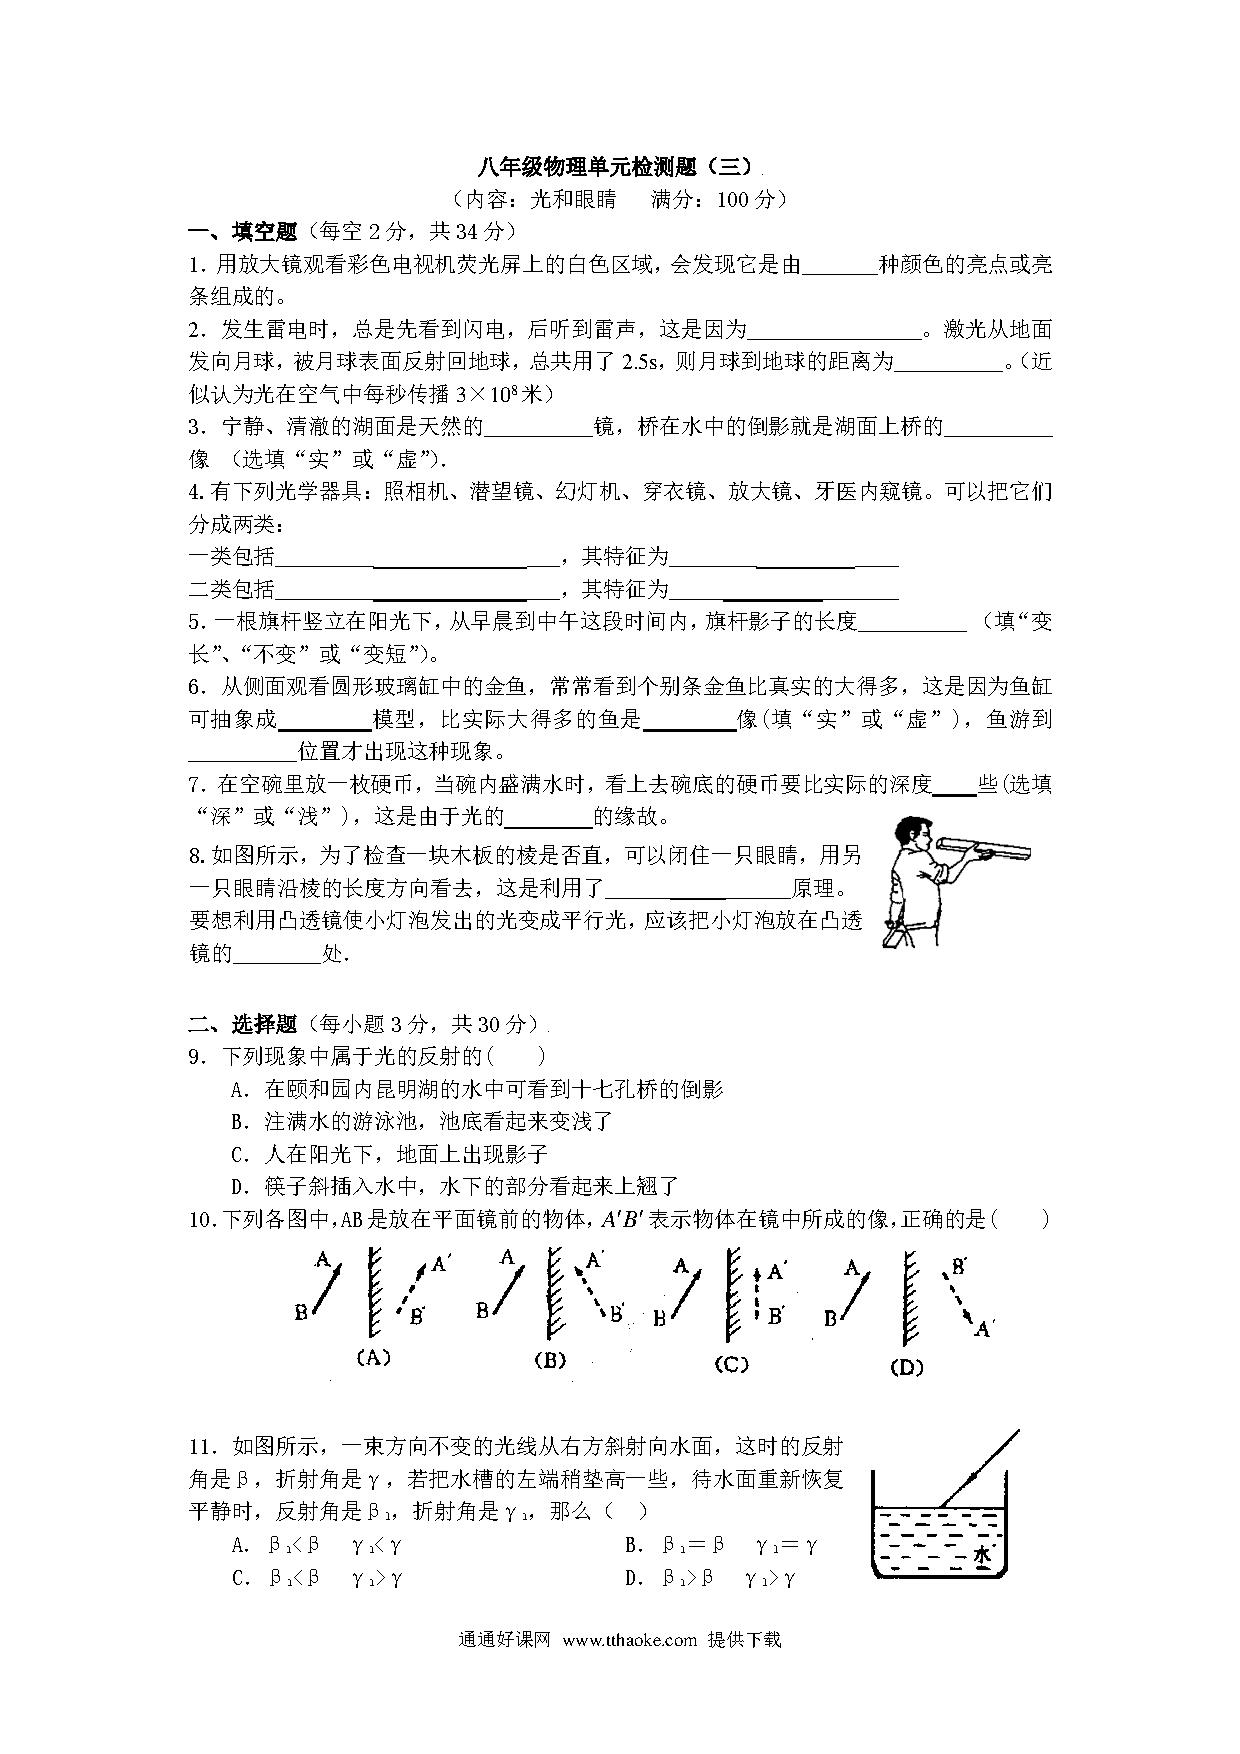 八年级物理单元检测题（三）
（内容：光和眼睛 满分：100 分）
一、填空题（每空 2 分，共 34 分）
1．用放大镜观看彩色电视机荧光屏上的白色区域，会发现它是由_______种颜色的亮点或亮
条组成的。
2．发生雷电时，总是先看到闪电，后听到雷声，这是因为________________。激光从地面
发向月球，被月球表面反射回地球，总共用了 2.5s，则月球到地球的距离为__________。（近
似认为光在空气中每秒传播 3×10⁸米）
3．宁静、清澈的湖面是天然的__________镜，桥在水中的倒影就是湖面上桥的__________
像 （选填“实”或“虚”）.
4. 有下列光学器具：照相机、潜望镜、幻灯机、穿衣镜、放大镜、牙医内窥镜。可以把它们
分成两类：
一类包括__________________________，其特征为_____________________
二类包括__________________________，其特征为_____________________
5．一根旗杆竖立在阳光下，从早晨到中午这段时间内，旗杆影子的长度__________ （填“变
长”、“不变”或“变短”）。
6．从侧面观看圆形玻璃缸中的金鱼，常常看到个别条金鱼比真实的大得多，这是因为鱼缸
可抽象成________模型，比实际大得多的鱼是________像(填“实”或“虚”)，鱼游到
__________位置才出现这种现象。
7．在空碗里放一枚硬币，当碗内盛满水时，看上去碗底的硬币要比实际的深度____些(选填
“深”或“浅”)，这是由于光的________的缘故。
8. 如图所示，为了检查一块木板的棱是否直，可以闭住一只眼睛，用另
一只眼睛沿棱的长度方向看去，这是利用了_________________原理。
要想利用凸透镜使小灯泡发出的光变成平行光，应该把小灯泡放在凸透
镜的________处.
二、选择题（每小题 3 分，共 30 分）
9．下列现象中属于光的反射的( )
A．在颐和园内昆明湖的水中可看到十七孔桥的倒影
B．注满水的游泳池，池底看起来变浅了
C．人在阳光下，地面上出现影子
D．筷子斜插入水中，水下的部分看起来上翘了
10．下列各图中，AB 是放在平面镜前的物体，A′B′ 表示物体在镜中所成的像，正确的是( )
A B A′ B′ (A)
A B A′ B′ (B)
A B A′ B′ (C)
A B B′ A′ (D)
11．如图所示，一束方向不变的光线从右方斜射向水面，这时的反射
角是β，折射角是γ，若把水槽的左端稍垫高一些，待水面重新恢复
平静时，反射角是β₁，折射角是γ₁，那么（ ）
水
A．β₁<β γ₁<γ B．β₁＝β γ₁＝γ
C．β₁<β γ₁>γ D．β₁>β γ₁>γ
通通好课网 www.tthaoke.com 提供下载